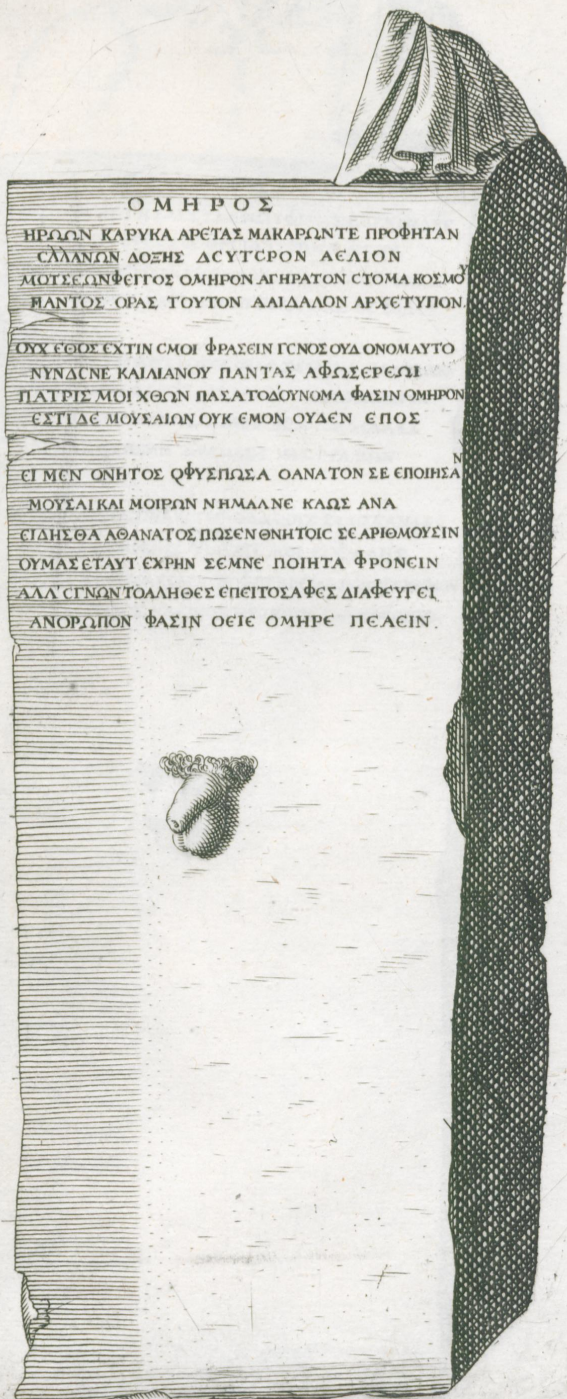 ΟΜΗΡΟΣ
ΗΡΩΩΝ ΚΑΡΥΚΑ ΑΡΕΤΑΣ ΜΑΚΑΡΩΝΤΕ ΠΡΟΦΗΤΑΝ
ΕΛΛΑΝΩΝ ΔΟΞΗΣ ΔΕΥΤΕΡΟΝ ΑΕΛΙΟΝ
ΜΟΤΣΕΩΝΦΕΓΓΟΣ ΟΜΗΡΟΝ ΑΓΗΡΑΤΟΝ СΤΟΜΑ ΚΟΣΜΟΥ
ΠΑΝΤΟΣ ΟΡΑΣ ΤΟΥΤΟΝ ΔΑΙΔΑΛΟΝ ΑΡΧΕΤΥΠΟΝ.
ΟΥΧ ΕΘΟΣ ΕΧΤΙΝ ΕΜΟΙ ΦΡΑΣΕΙΝ ΓΕΝΟΣ ΟΥΔ ΟΝΟΜΑΥΤΟ
ΝΥΝΔΕΝΕ ΚΑΙΛΙΑΝΟΥ ΠΑΝΤΑΣ ΑΦΩΣΕΡΕΩΙ
ΠΑΤΡΙΣ ΜΟΙ ΧΘΩΝ ΠΑΣΑΤΟΔΟΥΝΟΜΑ ΦΑΣΙΝ ΟΜΗΡΟΝ
ΕΣΤΙ ΔΕ ΜΟΥΣΑΙΩΝ ΟΥΚ ΕΜΟΝ ΟΥΔΕΝ ΕΠΟΣ
ΕΙ ΜΕΝ ΟΝΗΤΟΣ ΟΦΥΣΠΩΣΑ ΟΑΝΑΤΟΝ ΣΕ ΕΠΟΙΗΣΑΝ
ΜΟΥΣΑΙ ΚΑΙ ΜΟΙΡΩΝ ΝΗΜΑΛΝΕ ΚΑΩΣ ΑΝΑ
ΕΙΔΗΣΘΑ ΑΘΑΝΑΤΟΣ ΠΩΣΕΝ ΘΝΗΤΟΙС ΣΕ ΑΡΙΘΜΟΥΣΙΝ
ΟΥΜΑΣ ΕΤΑΥΤ ΕΧΡΗΝ ΣΕΜΝΕ ΠΟΙΗΤΑ ΦΡΟΝΕΙΝ
ΑΛΛ'ΕΓΝΩΝ ΤΟΑΛΗΘΕΣ ΕΠΕΙΤΟΣΑΦΕΣ ΔΙΑΦΕΥΓΕΙ
ΑΝΟΡΩΠΟΝ ΦΑΣΙΝ ΟΕΙΕ ΟΜΗΡΕ ΠΕΛΕΙΝ.